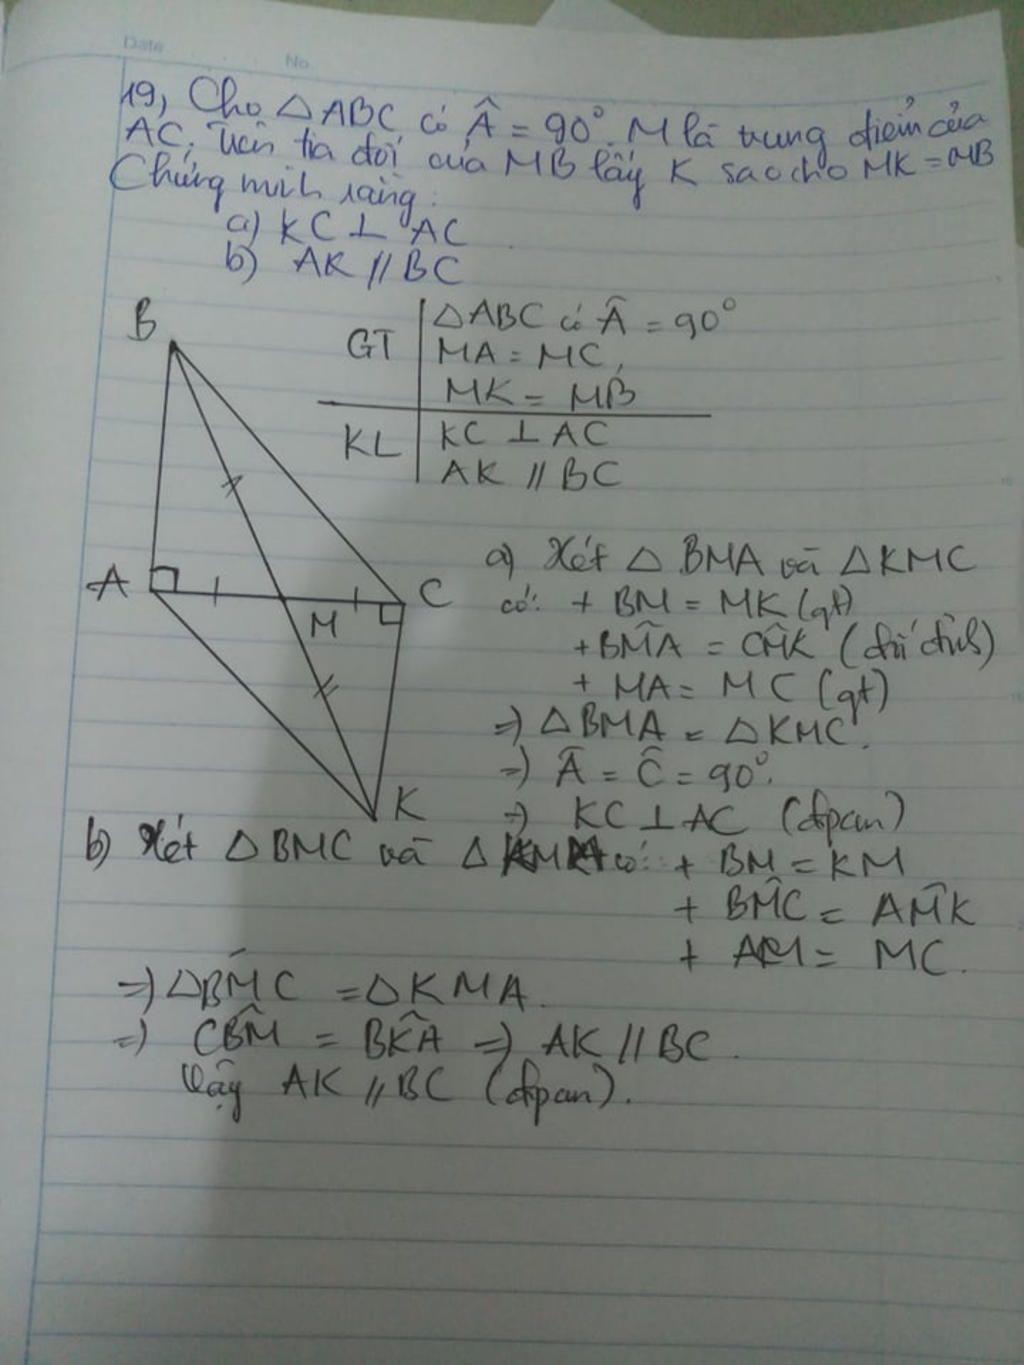 Date
No.
19, Cho △ABC có Â = 90°. M là trung điểm của
AC, trên tia đối của MB lấy K sao cho MK = MB
Chứng minh rằng:
a) KC ⊥ AC
b) AK // BC
B
A
M
C
K
GT
△ABC có Â = 90°
MA = MC,
MK = MB
KL
KC ⊥ AC
AK // BC
a) Xét △ BMA và △KMC
có: + BM = MK (gt)
+ BM̂A = CM̂K (đối đỉnh)
+ MA = MC (gt)
=> △BMA = △KMC.
=> Â = Ĉ = 90°.
=> KC ⊥ AC (đpcm)
b) Xét △BMC và △KMA có: + BM = KM
+ BM̂C = AM̂K
+ AM = MC.
=> △BMC = △KMA.
=> CB̂M = BK̂A => AK // BC.
Vậy AK // BC (đpcm).